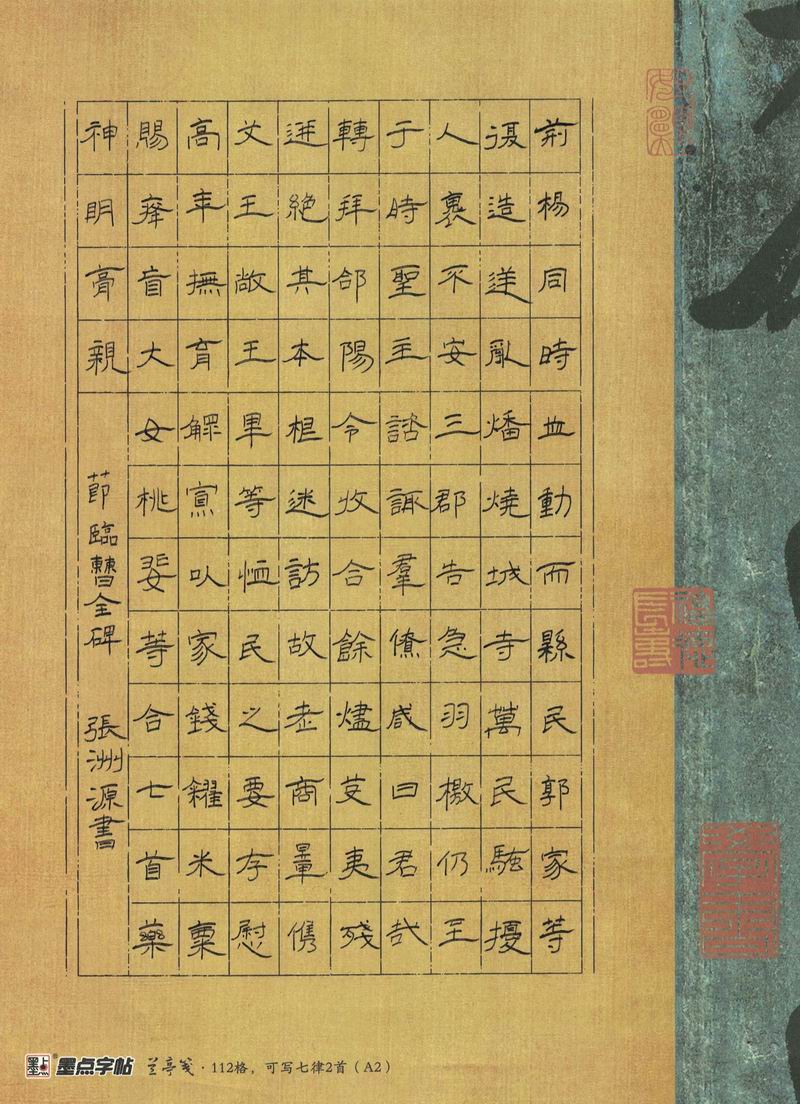 荊楊同時並動而縣民郭家等
復造逆亂燔燒城寺萬民騷擾
人裹不安三郡告急羽檄仍至
于時聖主諮諏羣僚咸曰君哉
轉拜郃陽令收合餘燼芟夷殘
迸絕其本根遂訪故老商暈儁
艾王敞王畢等恤民之要存慰
高年撫育鰥寡以家錢糴米粟
賜癃盲大女桃婓等合七首藥
神明膏親
節臨曹全碑 張洲源書
墨点字帖 兰亭笺·112格，可写七律2首（A2）